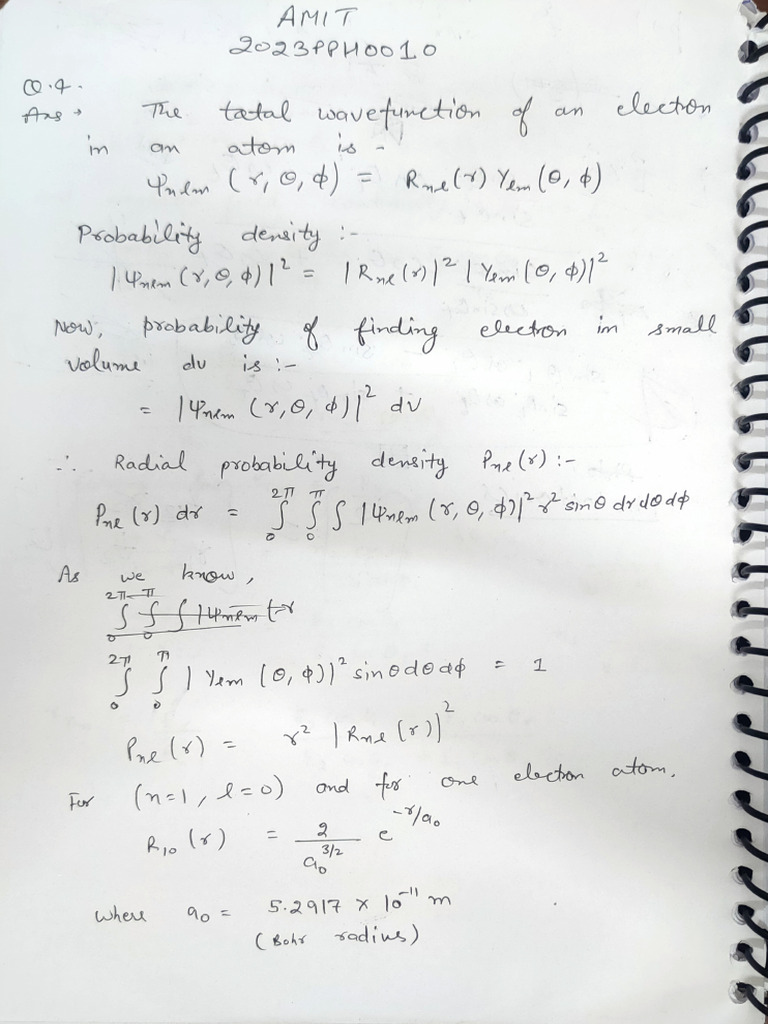 AMIT
2023PPH0010
Q.4.
Ans → The total wavefunction of an electron
in an atom is -
Ψnlm (r, θ, φ) = Rnl(r) Ylm (θ, φ)
Probability density :-
|Ψnlm (r, θ, φ)|² = |Rnl(r)|² |Ylm(θ, φ)|²
Now, probability of finding electron in small
volume dv is :-
= |Ψnlm (r, θ, φ)|² dv
∴ Radial probability density Pnl(r) :-
Pnl(r) dr = ∫₀^2π ∫₀^π ∫ |Ψnlm (r, θ, φ)|² r² sinθ dr dθ dφ
As we know,
∫₀^2π ∫₀^π ∫ |Ψnlm (r
∫₀^2π ∫₀^π |Ylm (θ, φ)|² sinθ dθ dφ = 1
Pnl(r) = r² |Rnl(r)|²
For (n=1, l=0) and for one electron atom.
R10(r) = 2/a0^3/2 e^-r/a0
where a0 = 5.2917 × 10^-11 m
(Bohr radius)